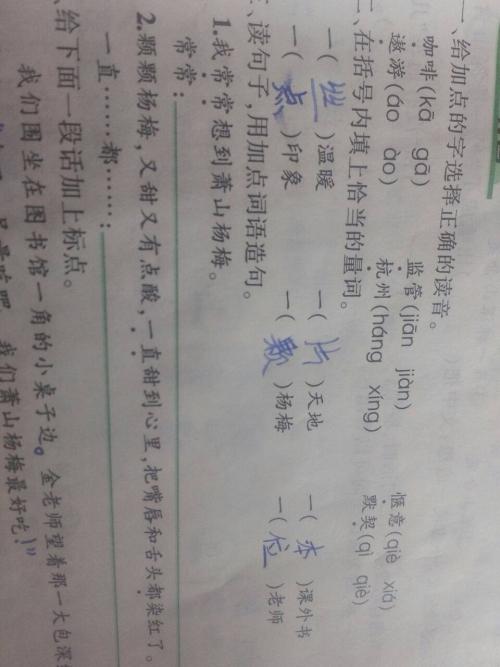 一、给加点的字选择正确的读音。
咖啡(kā gā) 监管(jiān jiàn) 惬意(qiè xiá)
遨游(áo ào) 杭州(háng xíng) 默契(qì qiè)
二、在括号内填上恰当的量词。
一(丝)温暖 一(片)天地 一(本)课外书
一(点)印象 一(颗)杨梅 一(位)老师
三、读句子,用加点词语造句。
1.我常常想到萧山杨梅。
常常:
2.颗颗杨梅,又甜又有点酸,一直甜到心里,把嘴唇和舌头都染红了。
一直……都……:
、给下面一段话加上标点。
我们围坐在图书馆一角的小桌子边。金老师望着那一大包深
我们萧山杨梅最好吃!”